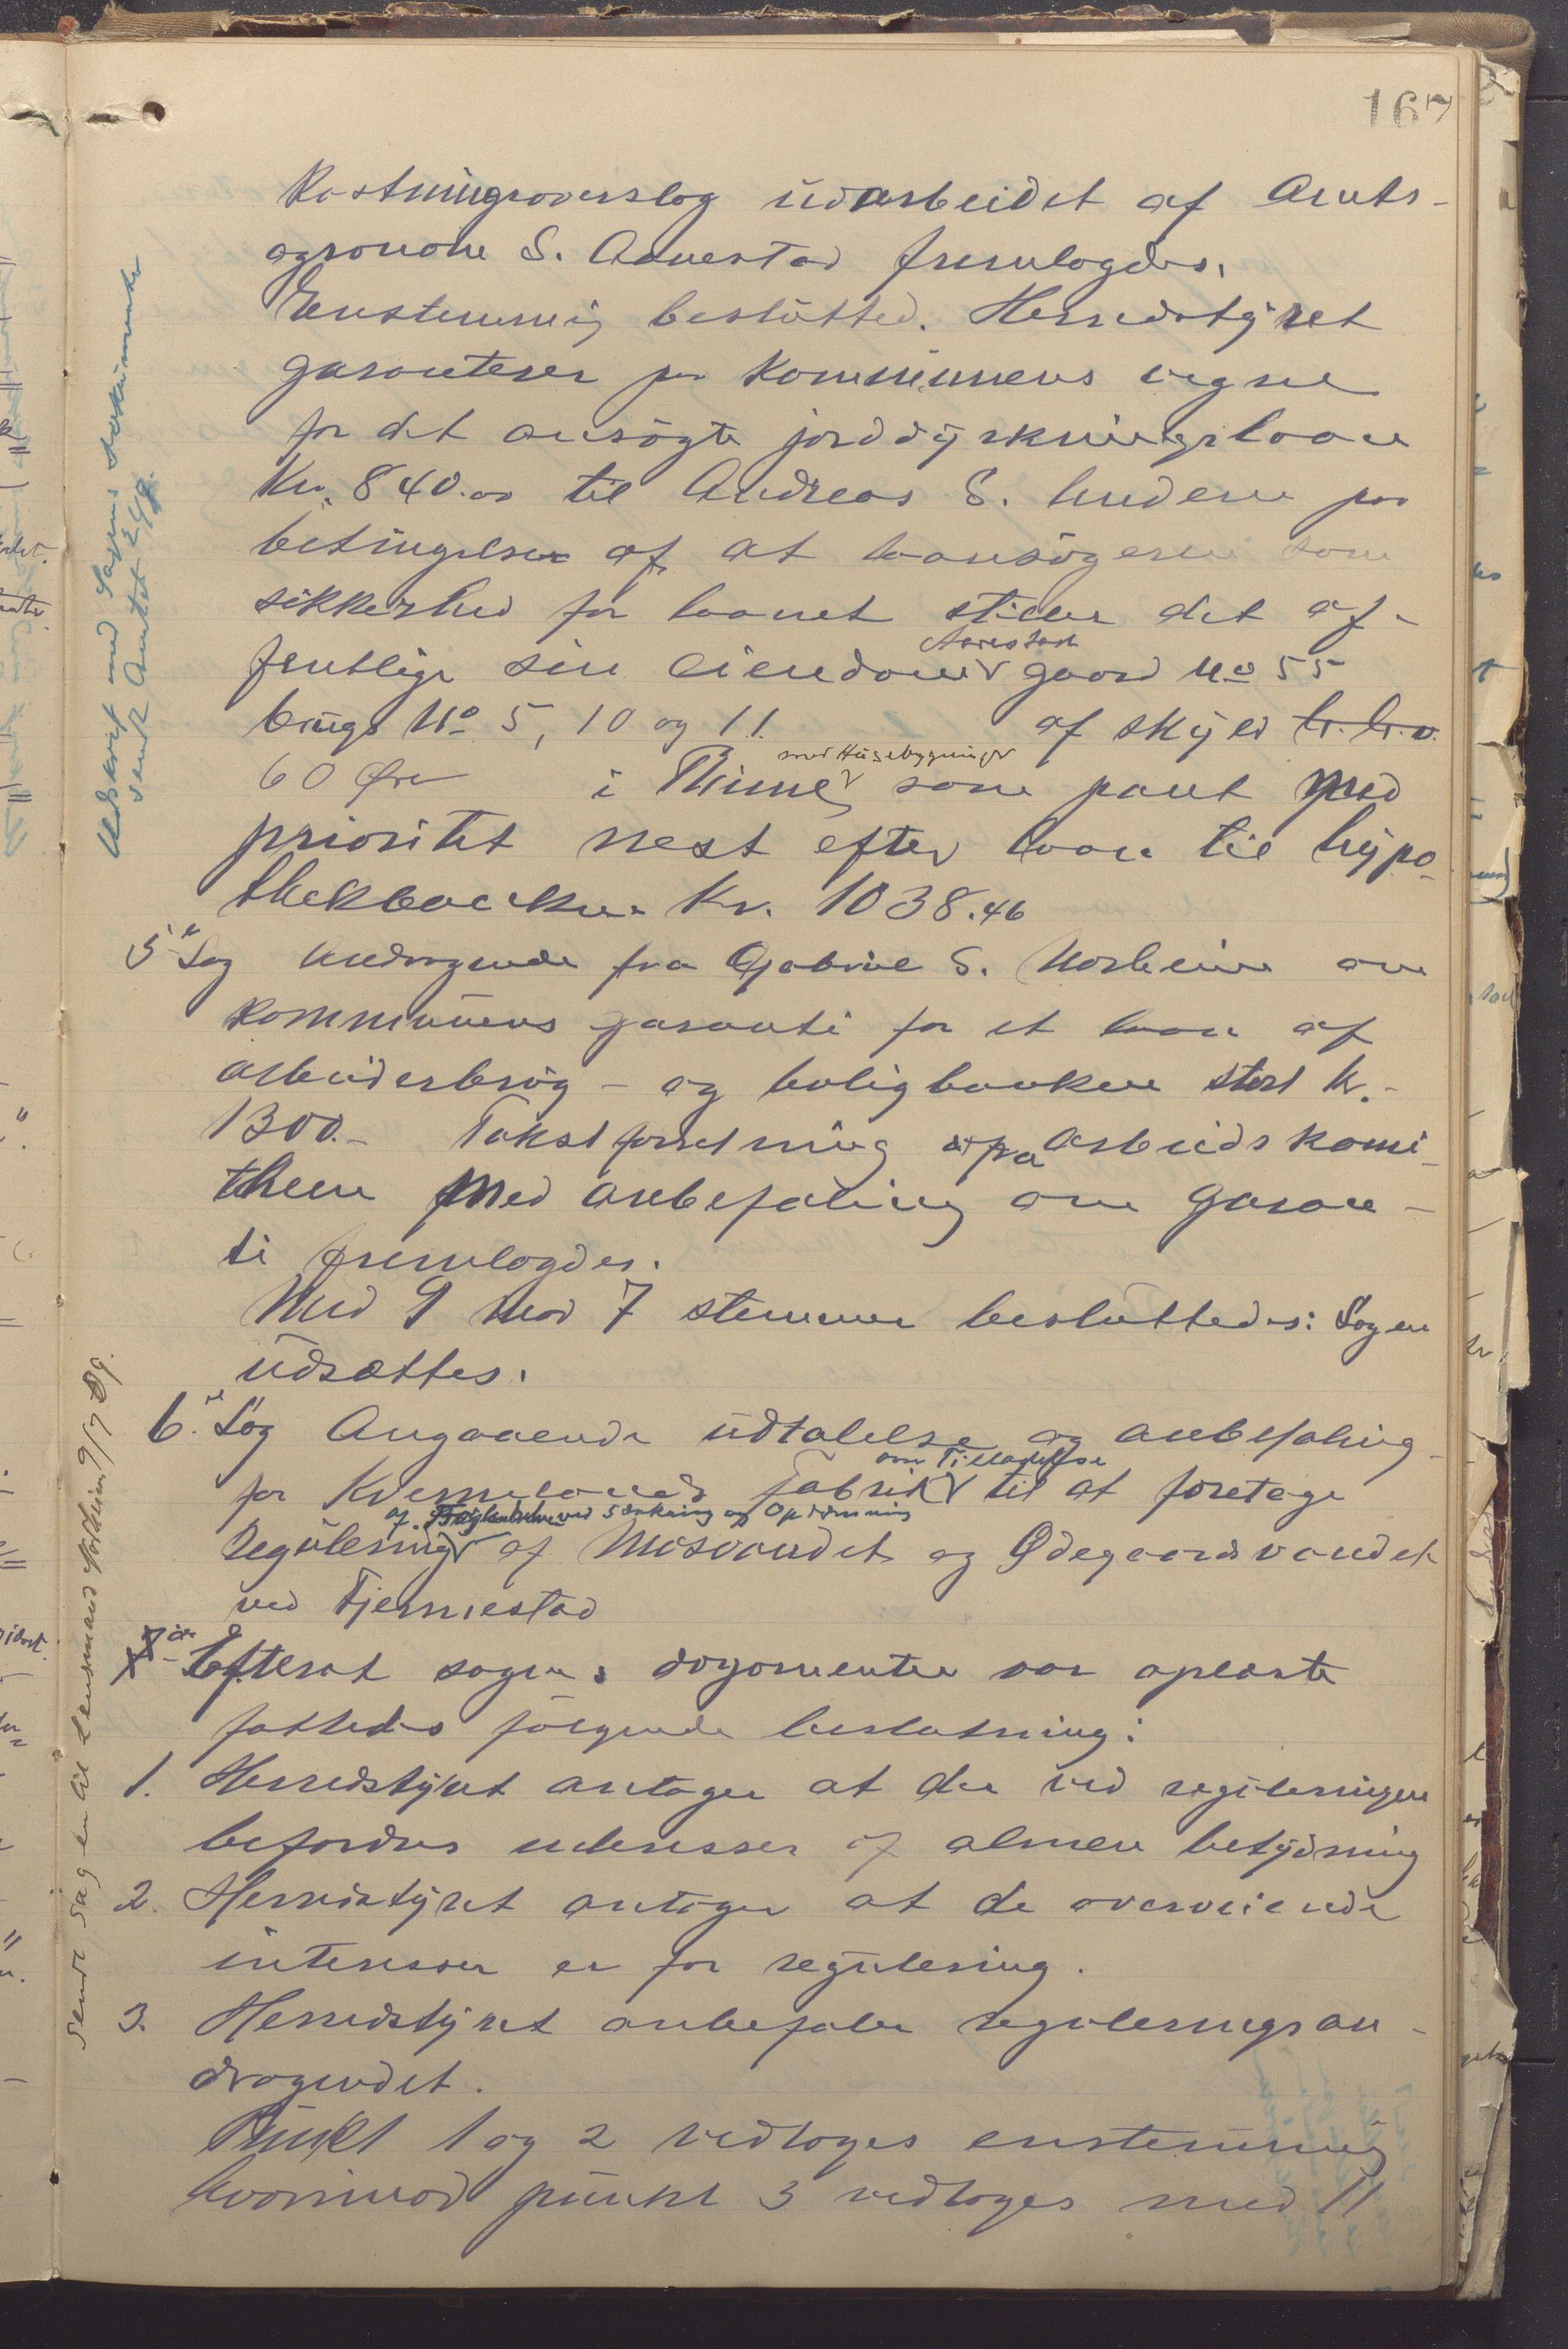 167
Kostningsoverslag udarbeidet af Amts-
agronom S. Aanestad fremlagdes.
Enstemmig beslutted. Herredstyret
garanterer paa Kommunens vegne
for det ansögte jorddyrkningslaan
Kr. 840.00 til Andreas S. Undem paa
betingelser af at laansögeren som
sikkerhed for laanet stiller det of-
fentlige sin eiendom Aarestad gaard No 55
brugs No 5, 10 og 11. af skyld
60 Øre i Thime med Husebygninger som pant med
prioritet nest efter laan til hypo-
thekbanken Kr. 1038.46
5te Sag Andragende fra Gabriel S. Norheim om
kommunens garanti for et laan af
arbeiderbrug- og boligbanken stort kr.-
1300.- Takstforretning fra Arbeidskomi-
theen med anbefaling om garan-
ti fremlagdes.
Med 9 mod 7 stemmer besluttedes: Sagen
udsættes.
6te Sag Angaaende udtalelse og anbefaling
for Kvernelands Fabrik om Tilladelse til at foretage
Regulering af ved Sænkning og Opdæmning af Mosvandet og Ødegaardsvandet
ved Fjermestad
Efterat sagens dogomenter var oplæste
fattedes fölgende beslutning:
1. Herredstyret antager at der ved reguleringen
befordres interesser af almen betydning
2. Herredstyret antager at de overveiende
interesser er for regulering.
3. Herredstyret anbefaler reguleringsan-
dragendet.
Punkt 1 og 2 vedtoges enstemmig
hvorimod punkt 3 vedtoges med 11
Udskrift med Sagens Dokumenter
sendt Amtet
Sendt Sagen til Lensmand Norheim 9/7 09.